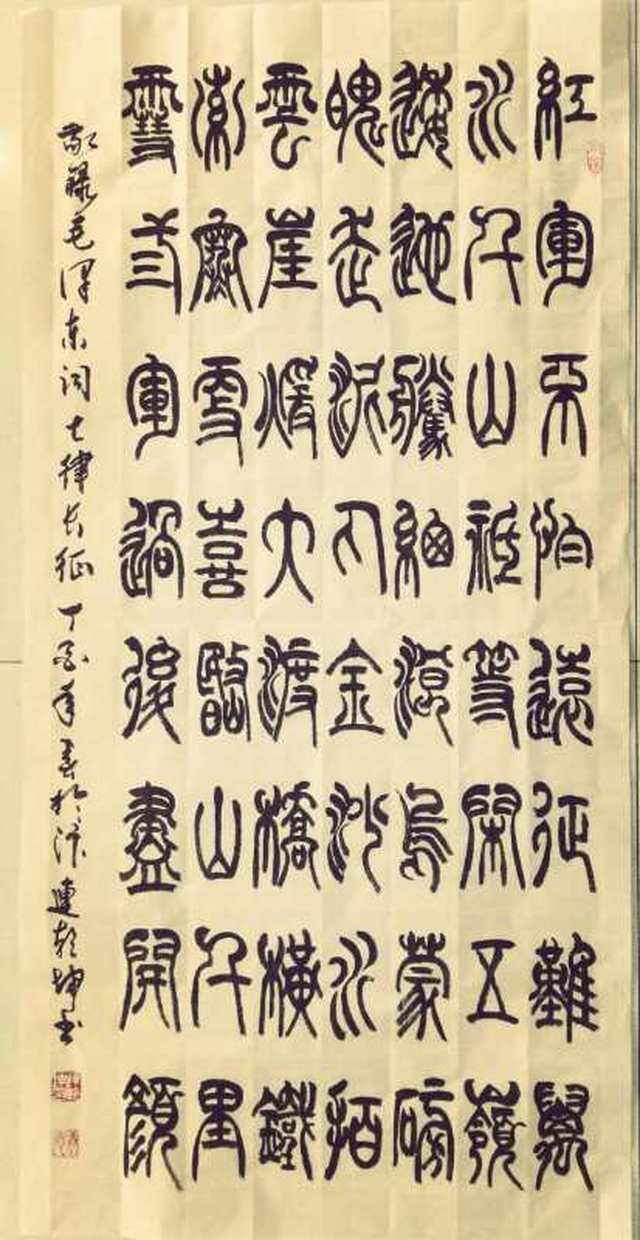 紅軍不怕遠征難萬
水千山祇等閑五嶺
逶迤騰細浪烏蒙磅
魄走泥丸金沙水拍
雲崖暖大渡橋橫鐵
索寒更喜岷山千里
雪三軍過後盡開顏
敬錄毛澤東詞七律長征丁酉年春於汴連乾坤書